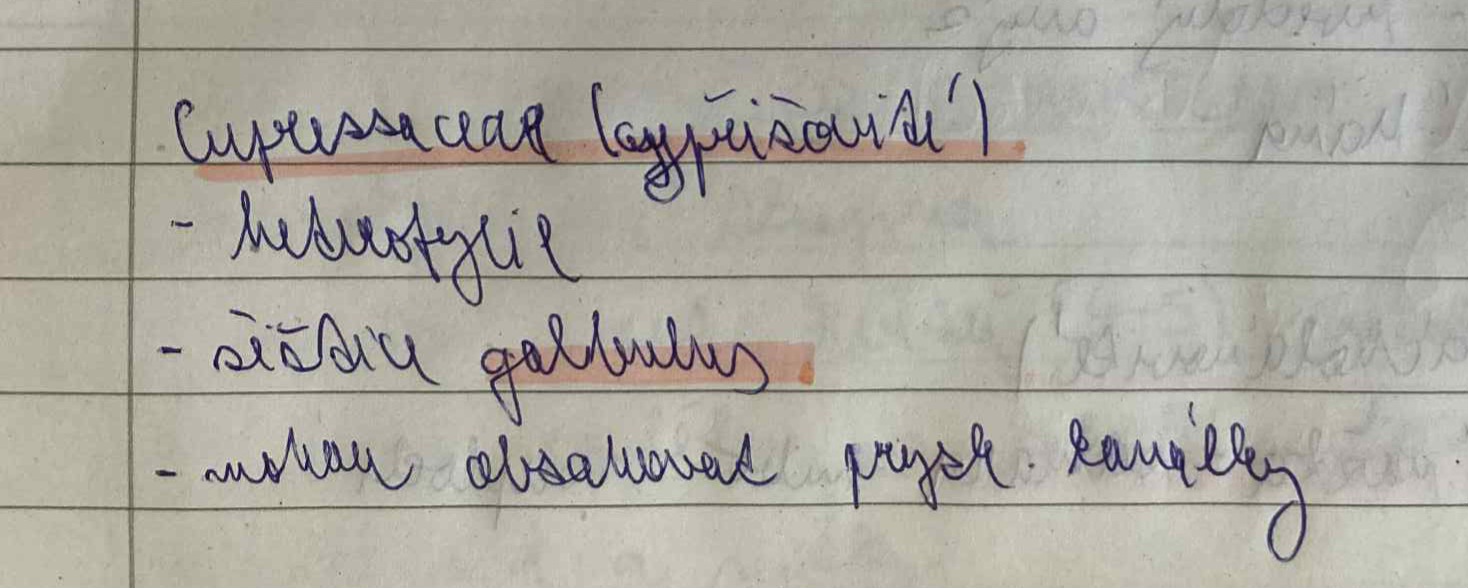 Cupressaceae (cypřišovité)
- heterofylie
- šištice galbulus
- mohou obsahovat prysk. kanálky